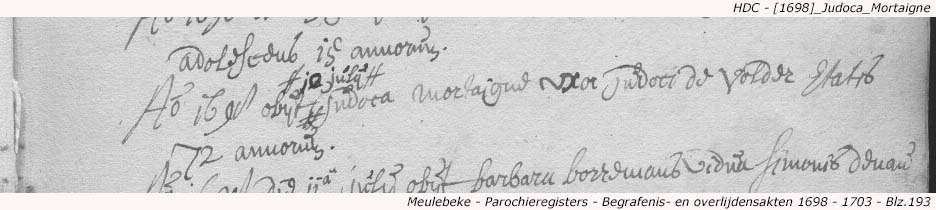 HDC - [1698]_Judoca_Mortaigne
adolescens 15 annorum.
# 10 julij #
Ao 1698 obijt Judoca Mortaigne uxor Judoci de Volder Etatis
72 annorum.
obijt barbara borremans vidua Simonis
Meulebeke - Parochieregisters - Begrafenis- en overlijdensakten 1698 - 1703 - Blz.193